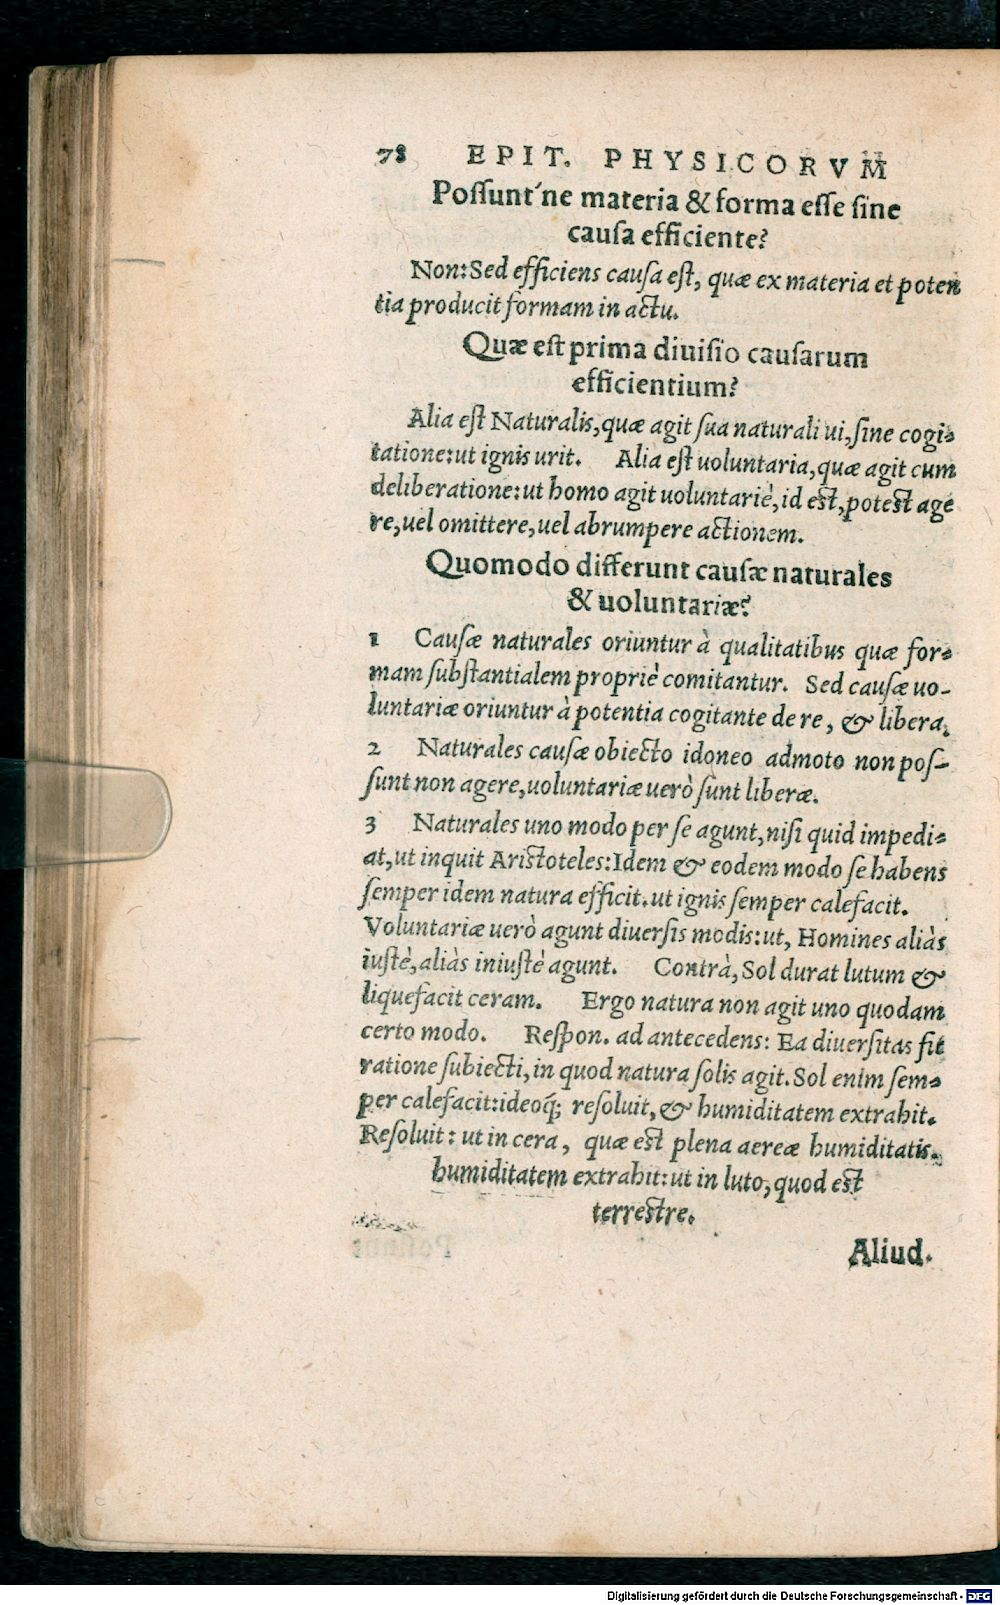 78 EPIT. PHYSICORVM
Poſſunt´ne materia & forma eſſe ſine
cauſa efficiente?
Non: Sed efficiens cauſa eſt, quæ ex materia et poten
tia producit formam in actu.
Quæ eſt prima diuiſio cauſarum
efficientium?
Alia eſt Naturalis, quæ agit ſua naturali ui, ſine cogi⸗
tatione: ut ignis urit. Alia eſt uoluntaria, quæ agit cum
deliberatione: ut homo agit uoluntariè, id est, potest age
re, uel omittere, uel abrumpere actionem.
Quomodo differunt cauſæ naturales
& uoluntariæ?
1 Cauſæ naturales oriuntur à qualitatibus quæ for⸗
mam ſubſtantialem propriè comitantur. Sed cauſæ uo-
luntariæ oriuntur à potentia cogitante de re, & libera.
2 Naturales cauſæ obiecto idoneo admoto non poſ-
ſunt non agere, uoluntariæ uerò ſunt liberæ.
3 Naturales uno modo per ſe agunt, niſi quid impedi⸗
at, ut inquit Aristoteles: Idem & eodem modo ſe habens
ſemper idem natura efficit. ut ignis ſemper calefacit.
Voluntariæ uerò agunt diuerſis modis: ut, Homines aliàs
iuſtè, aliàs iniuſtè agunt. Contrà, Sol durat lutum &
liquefacit ceram. Ergo natura non agit uno quodam
certo modo. Reſpon. ad antecedens: Ea diuerſitas fit
ratione ſubiecti, in quod natura ſolis agit. Sol enim ſem⸗
per calefacit: ideoq́; reſoluit, & humiditatem extrahit.
Reſoluit: ut in cera, quæ est plena aereæ humiditatis.
humiditatem extrahit: ut in luto, quod est
terrestre.
Aliud.
Digitalisierung gefördert durch die Deutsche Forschungsgemeinschaft - DFG